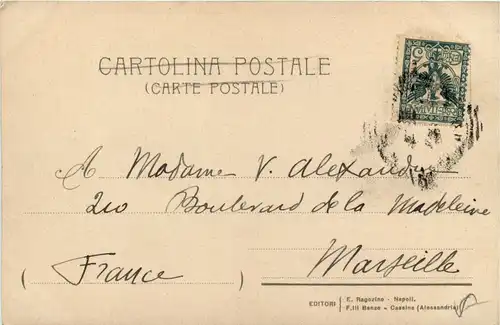 CARTOLINA POSTALE
(CARTE POSTALE)
A Madame V. Alexandre
210 Boulevard de la Madeleine
Marseille
(France)
EDITORI { E. Ragozino - Napoli.
F.lli Benze - Cassine (Alessandria)